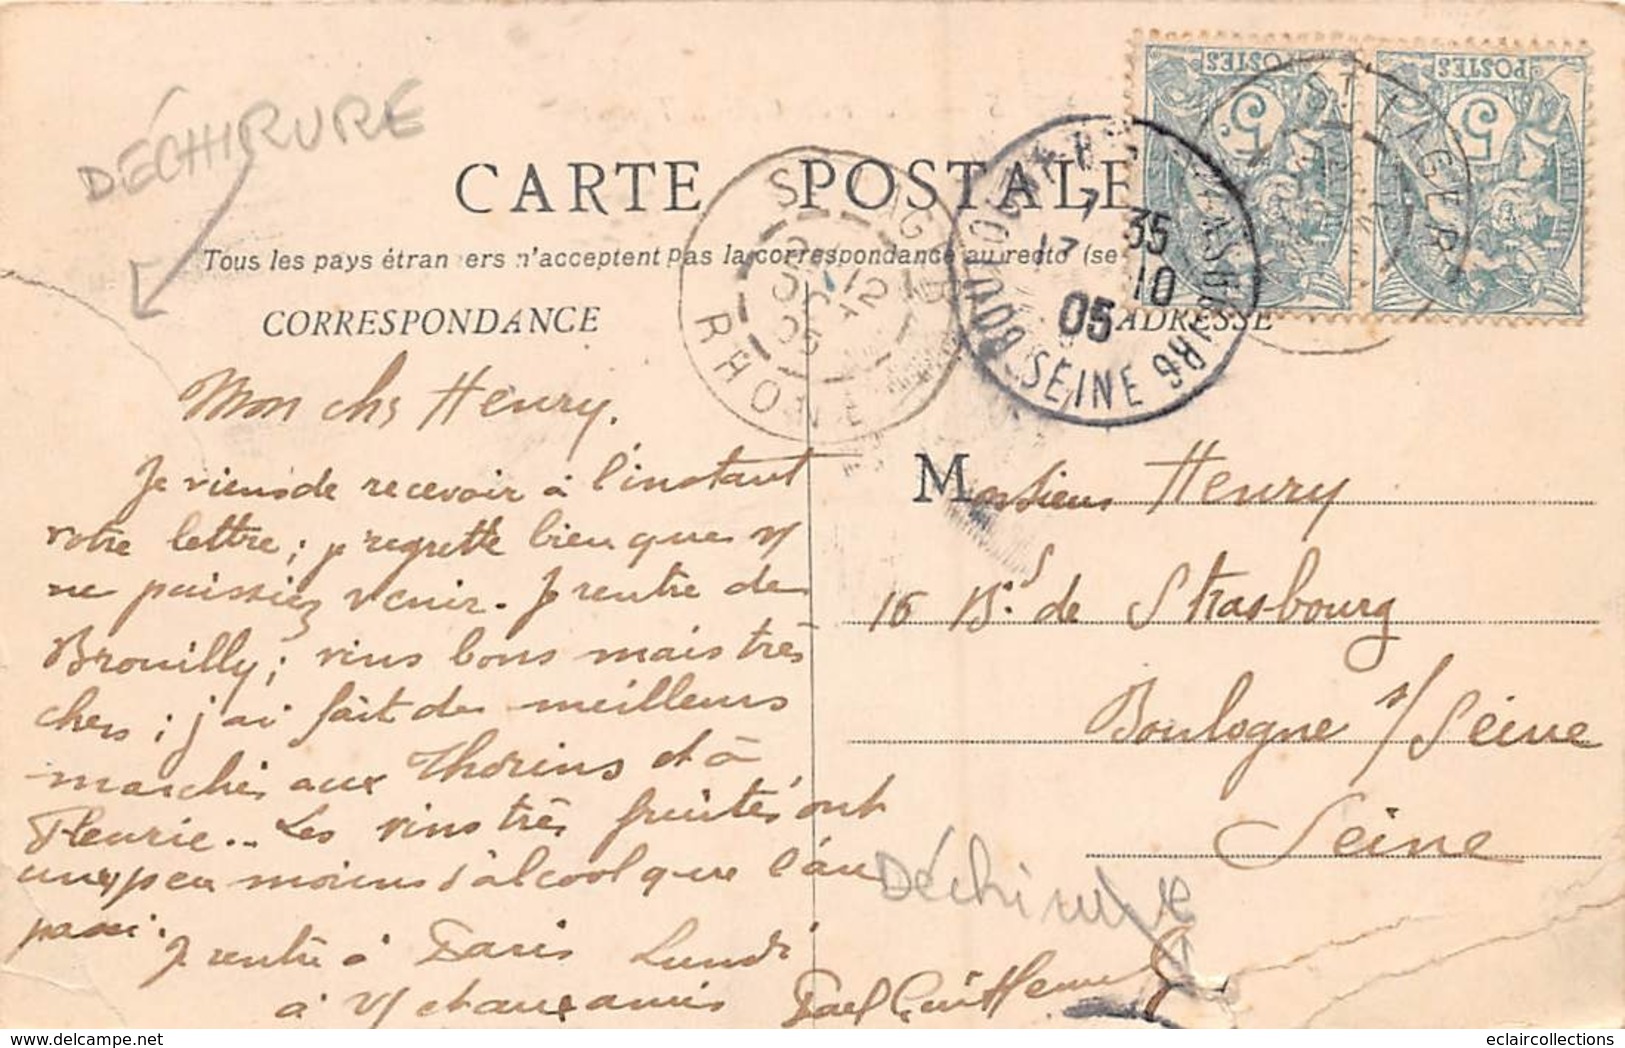 DÉCHIRURE
CARTE POSTALE
Tous les pays étrangers n'acceptent pas la correspondance au recto (se
CORRESPONDANCE
ADRESSE
POSTES
5c
POSTES
5c
ST LAGER
RHONE
12
OCT
05
BOULOGNE-S-SEINE
STRASBOURG
7 35
17 10
05
ST LAGER
Mon cher Henry.
Je viens de recevoir à l'instant
votre lettre ; je regrette bien que v/
ne puissiez venir. Je rentre de
Brouilly ; vins bons mais très
chers ; j'ai fait de meilleurs
marchés aux Thorins et à
Fleurie.. Les vins très fruités ont
un peu moins d'alcool que l'an
passé.
Je rentre à Paris Lundi
à v/ et aux amis
Monsieur Henry
16 Bd. de Strasbourg
Boulogne s/ Seine
Seine
Déchirure
eclaircollections
www.delcampe.net